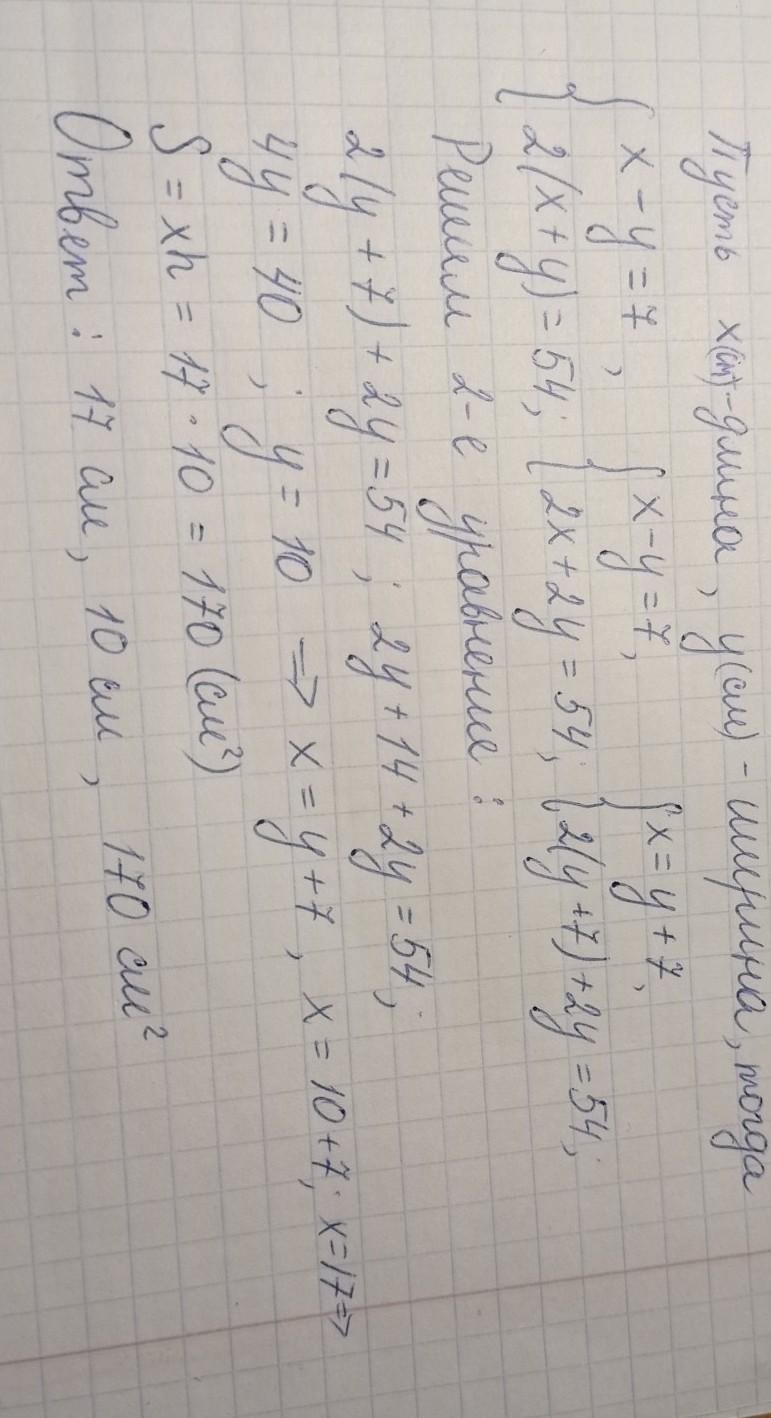 Пусть x(см) - длина, y(см) - ширина, тогда
{ x - y = 7, { x - y = 7, { x = y + 7,
{ 2(x + y) = 54; { 2x + 2y = 54; { 2(y + 7) + 2y = 54;
Решим 2-е уравнение:
2(y + 7) + 2y = 54; 2y + 14 + 2y = 54;
4y = 40; y = 10 ⇒ x = y + 7, x = 10 + 7; x = 17 ⇒
S = xh = 17 · 10 = 170 (см²)
Ответ: 17 см, 10 см, 170 см²